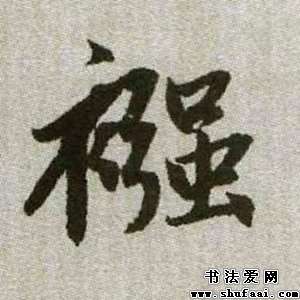 襁
书法爱网
www.shufaai.com